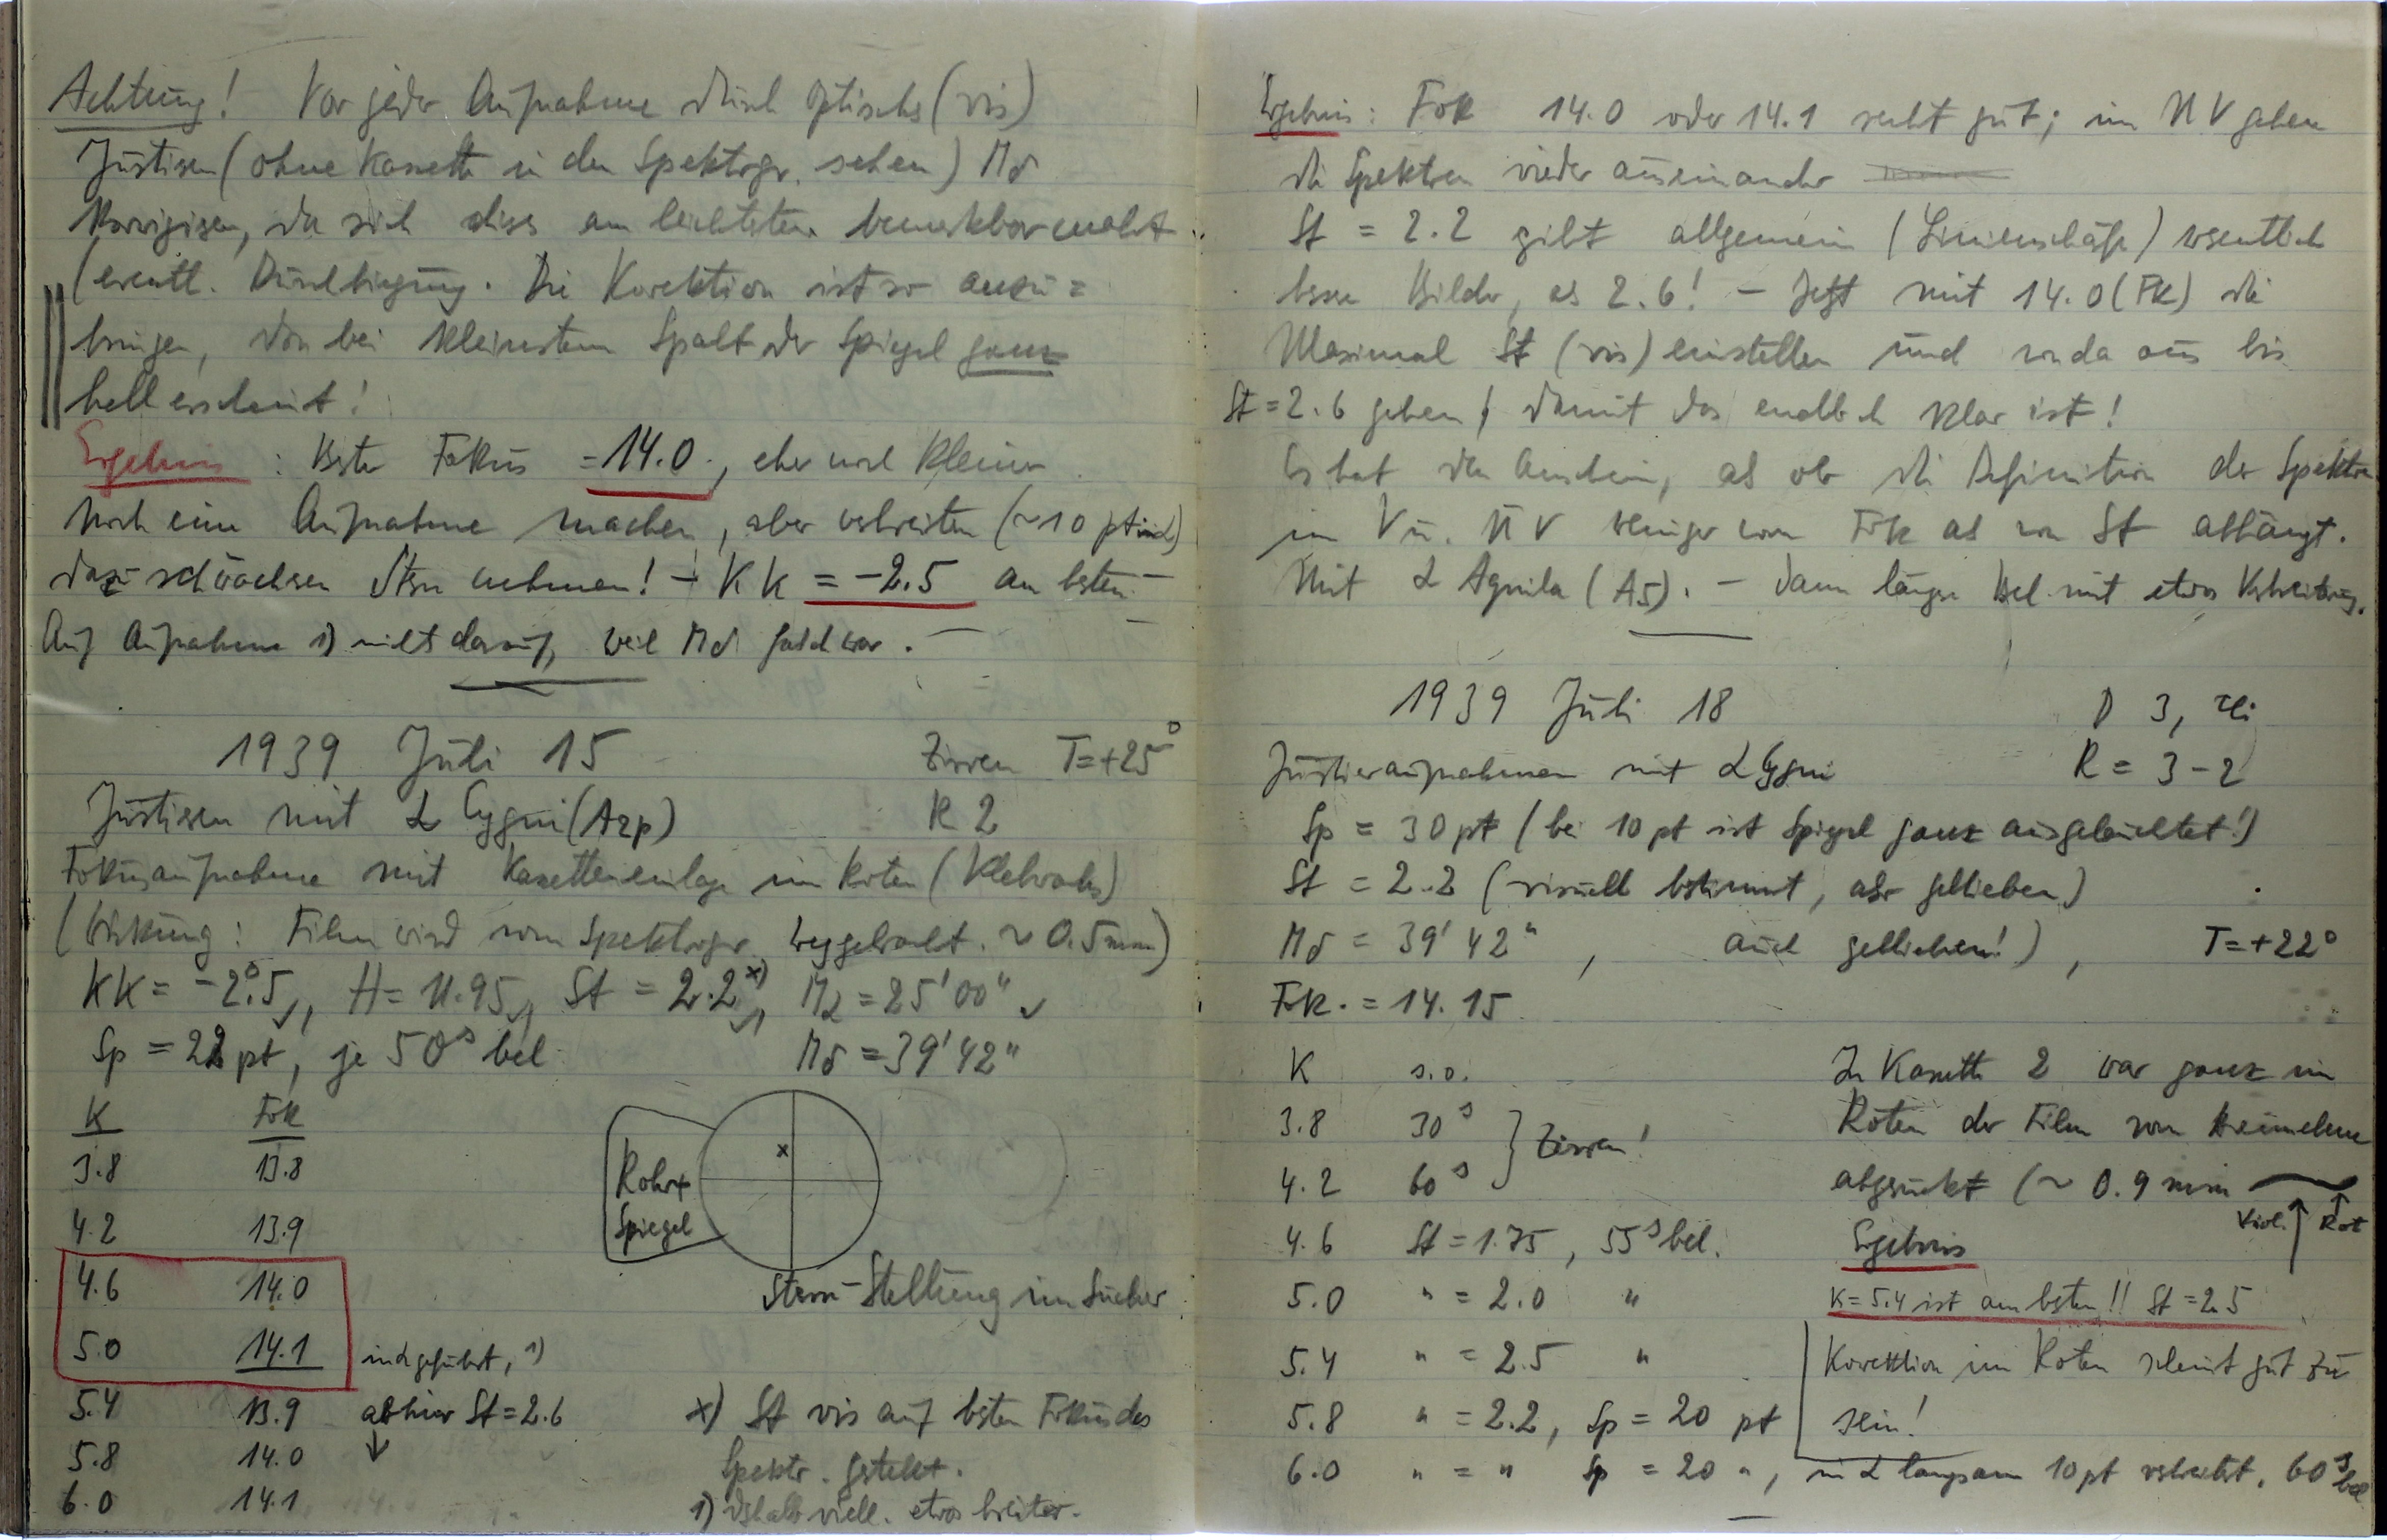 Achtung! Vor jeder Aufnahme durch optisches (vis)
Justieren (ohne Kassette in den Spektrgr. sehen) Mδ
korrigieren, da sich dies am leichtesten bemerkbar macht
(eventl. Durchbiegung. Die Korektion ist so anzu=
bringen, dass bei kleinstem Spalt der Spiegel ganz
hell erscheint!
Ergebnis : Bester Fokus = 14.0., eher noch kleiner
Noch eine Aufnahme machen, aber verbreitern (~10 pt in α)
dazu schwächeren Stern nehmen! – KK = -2.5 am besten –
Auf Aufnahme 1) nichts darauf, weil Mδ falsch war. –
1939 Juli 15 Zirren T=+25°
Justieren mit α Cygni (A2p) R 2
Fokusaufnahme mit Kassetteneinlage im Roten (Klebwachs)
(Wirkung: Film wird vom Spektrogr. weggebracht. ~ 0.5mm)
KK = -2°.5, H = 11.95, St = 2.2 x), Mα = 25'00"
Sp = 22 pt, je 50s bel. Mδ = 39'42"
K Fok
3.8 13.8
4.2 13.9
4.6 14.0
5.0 14.1 in α geführt, 1)
5.4 13.9 ab hier St = 2.6
5.8 14.0
6.0 14.1
Rohr+
Spiegel
x
Stern-Stellung im Sucher
x) St vis auf besten Fokus des
Spektr. gestellt.
1) deshalb viell. etwas breiter.
Ergebnis: Fok 14.0 oder 14.1 recht gut; im UV gehen
die Spektren wieder auseinander
St = 2.2 gibt allgemein (Linienschärfe) wesentlich
bessere Bilder, als 2.6! – Jetzt mit 14.0 (Fk) die
Maximal St (vis) einstellen und von da aus bis
St = 2.6 gehen, damit das endlich klar ist!
Es hat den Anschein, als ob die Definition der Spektren
im V u. UV weniger vom Fok als von St abhängt.
Mit α Aquila (A5). – Dann längere Bel. mit etwas Verbreiterung.
1939 Juli 18 D 3, Zi
Justieraufnahmen mit α Cygni R = 3-2
Sp = 30 pt (bei 10 pt ist Spiegel ganz ausgeleuchtet!)
St = 2.2 (visuell bestimmt, aber geblieben)
Mδ = 39'42", auch geblieben!), T=+22°
Fok. = 14.15
K s.o.
3.8 30s
4.2 60s } Zirren!
4.6 St = 1.75, 55s bel.
5.0 " = 2.0 "
5.4 " = 2.5 "
5.8 " = 2.2, Sp = 20 pt
6.0 " = " Sp = 20 ", in α langsam 10 pt verbreitert, 60s bel
In Kassette 2 war ganz im
Roten der Film vom
abgerückt (~ 0.9 mm
Viol. Rot
Ergebnis
K = 5.4 ist am besten!! St = 2.5
Korektion im Roten scheint gut zu
sein!